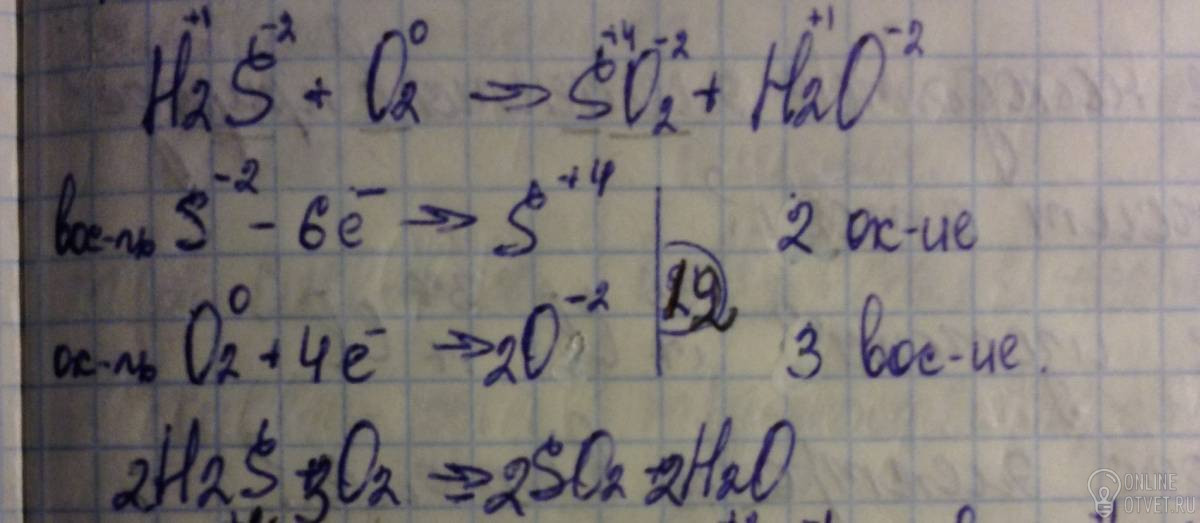 H₂⁺¹S⁻² + O₂⁰ → S⁺⁴O₂⁻² + H₂⁺¹O⁻²
вос-ль S⁻² - 6e⁻ → S⁺⁴ | 2 ок-ие
12
ок-ль O₂⁰ + 4e⁻ → 2O⁻² | 3 вос-ие.
2H₂S + 3O₂ → 2SO₂ + 2H₂O
ONLINE
OTVET.RU